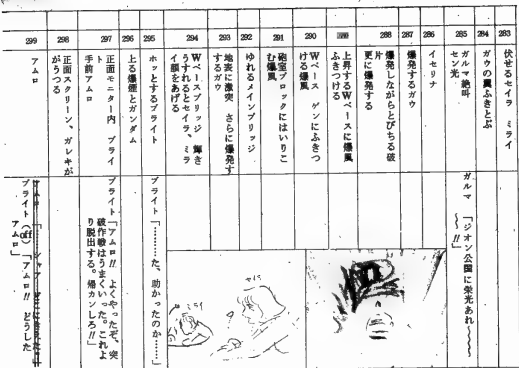 283
伏せるセイラ ミライ
284
ガウの翼ふきとぶ
285
ガルマ絶叫
セン光
ガルマ 「ジオン公国に栄光あれ〜〜〜
〜〜!!」
286
イセリナ
287
爆発するガウ
288
爆発しながらとびちる破片
更に爆発する
上昇するWベースに爆風
ふきつける
290
Wベース ゲンにふきつ
ける爆風
291
砲室ブロックにはいりこ
む爆風
292
ゆれるメインブリッジ
293
地表に激突 さらに爆発す
するガウ
294
Wベースブリッジ 輝き
うすれるとセイラ、ミラ
イ顔をあげる
セイラ
ミライ
295
ホッとするブライト
ブライト「………た、助かったのか……」
296
上る爆煙とガンダム
297
正面モニター内 ブライ
ト
手前アムロ
ブライト「アムロ!! よくやったぞ、突
破作戦はうまくいった。これよ
り脱出する。帰カンしろ!!」
298
正面スクリーン、ガレキが
がうつる
299
アムロ
ブライト(off)「アムロ!! どうした
アムロ」